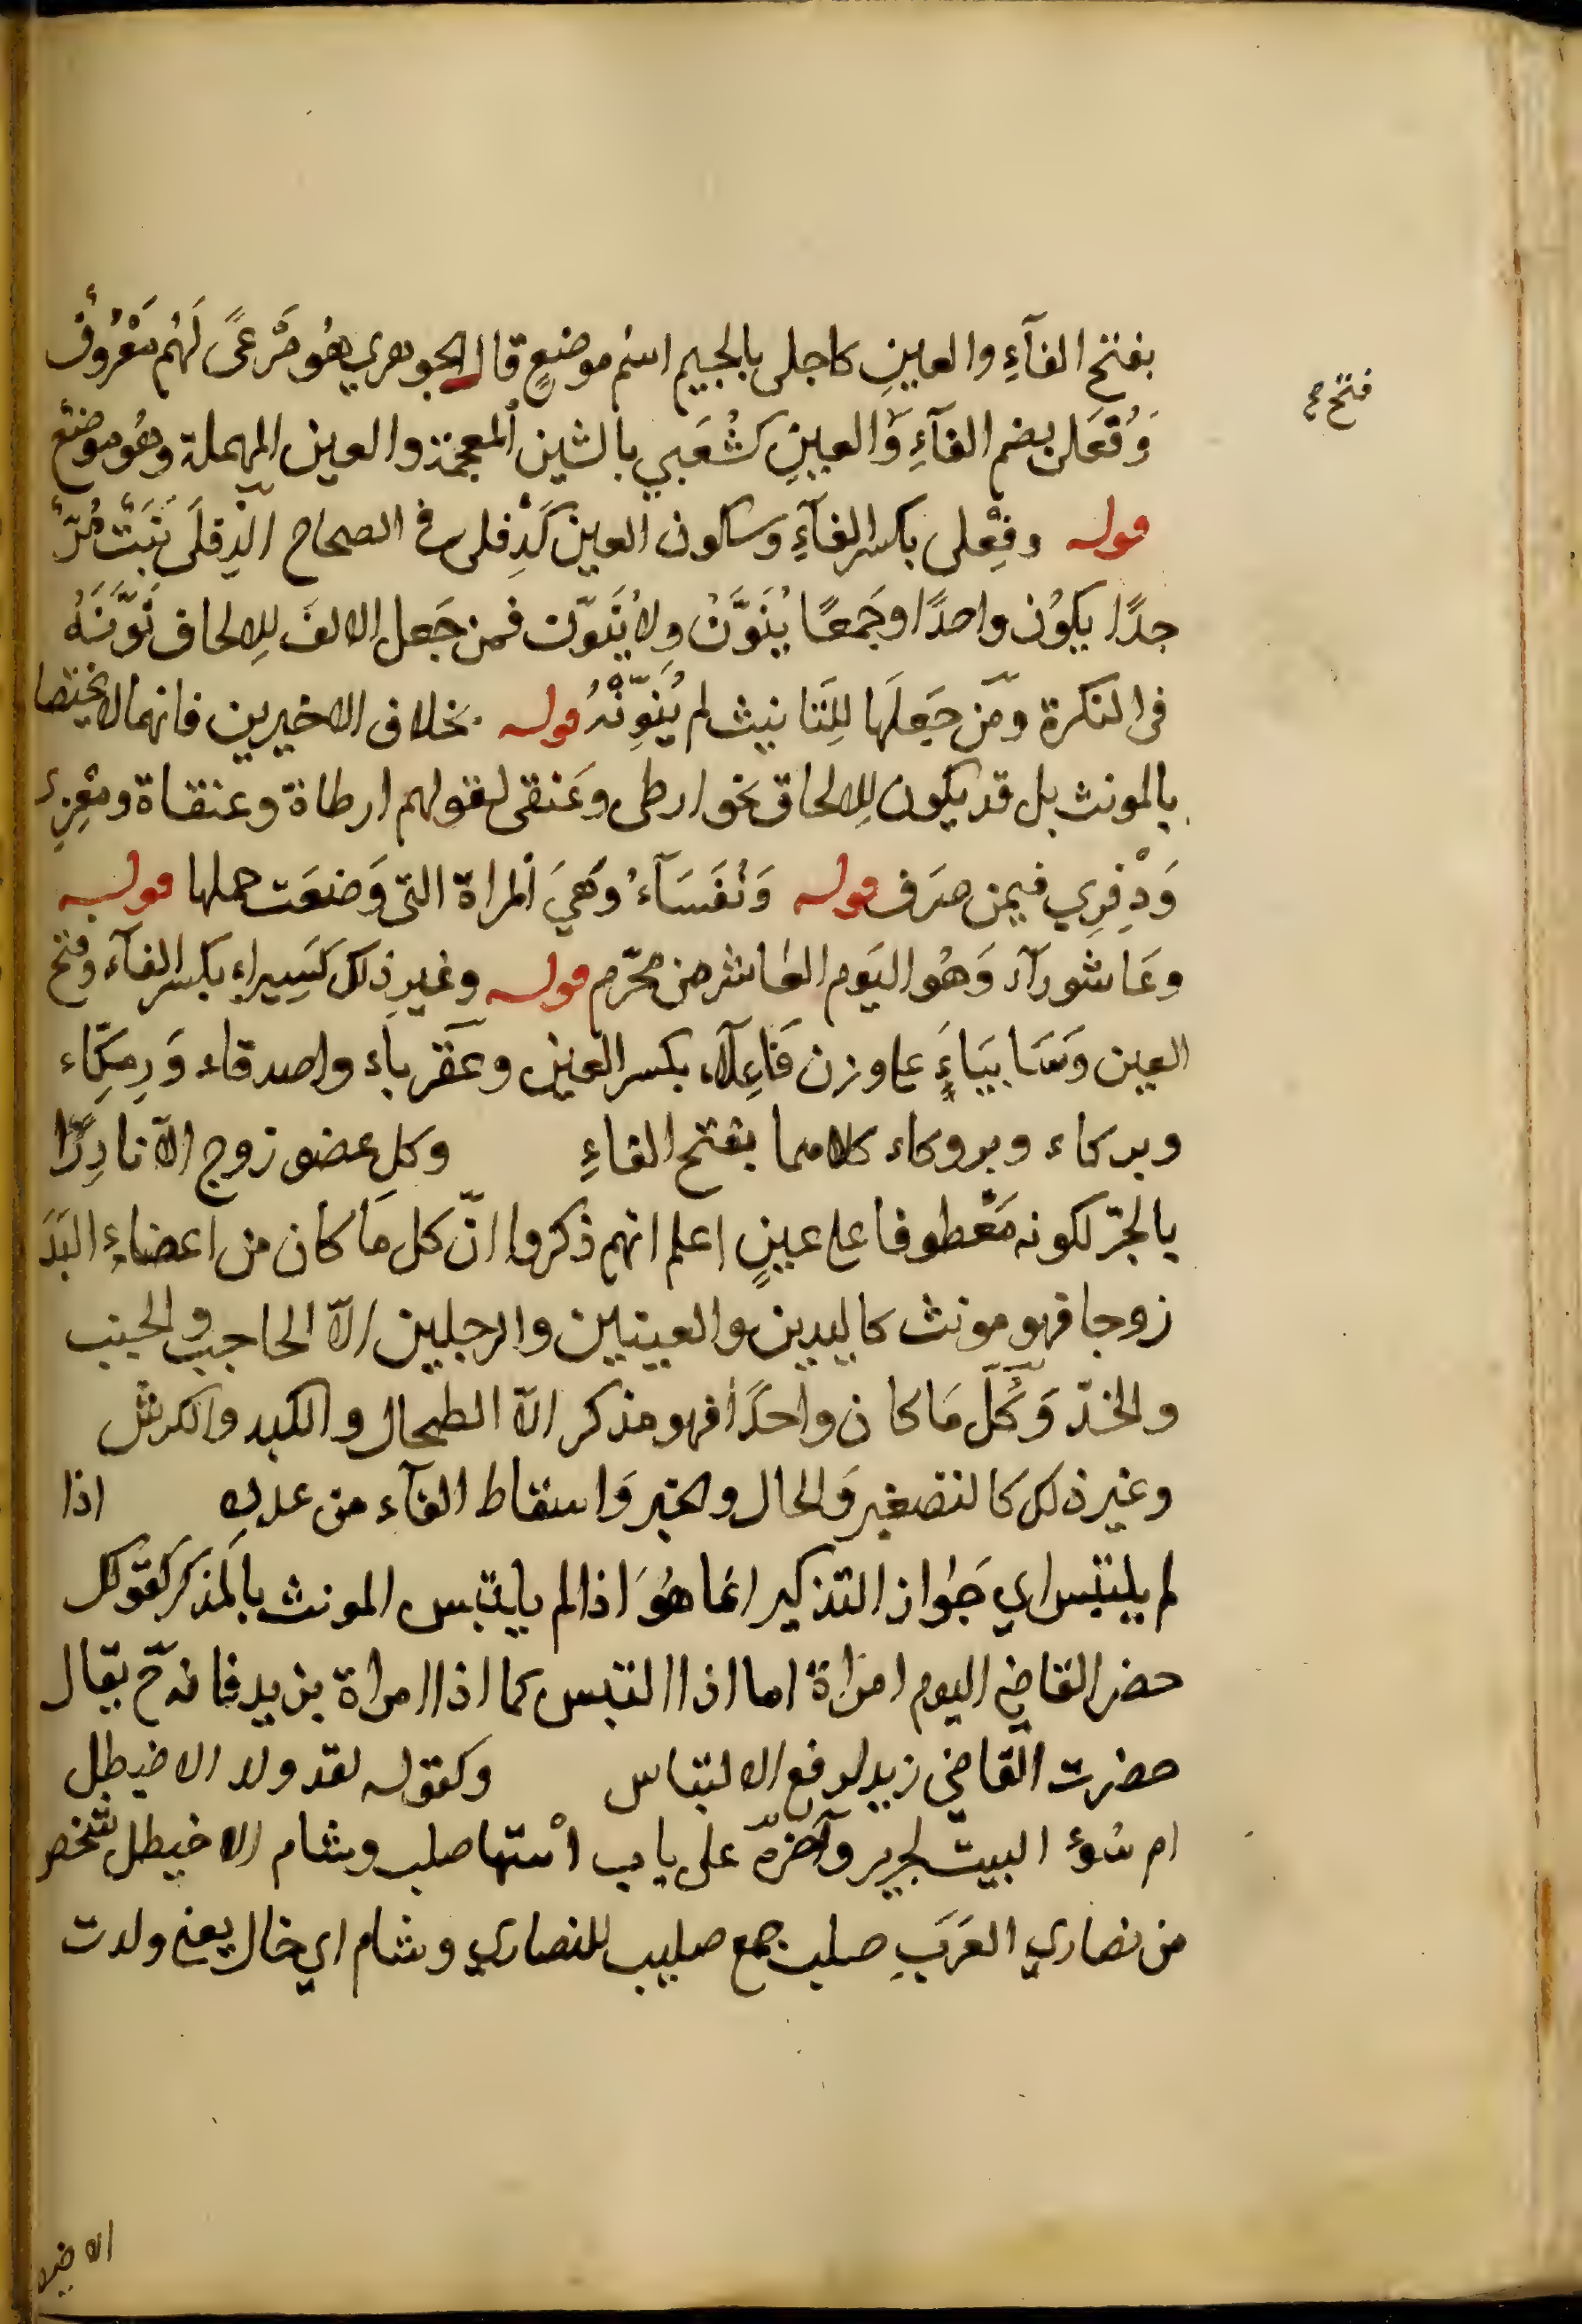 بفتح الفآءِ والعينِ كاجلى بالجيم اسْم موضعٍ قال الجوهري هُو مَرْعىً لَهُم مَعْرُوفٌ
فتح ع
وَفُعَلى بضم الفآءِ وَالعينِ كشُعَبي بالشين المعجمة والعين المهملة وهُو موضع
قوله وفِعْلى بكسر الفآءِ وسكون العين كَذِفلى في الصحاح الذِفلَى نَبَتٌ مُرٌّ
جدًا يكوُن واحدًا وجَمعًا يُنَوَّنُ ولا يُنَوّن فمن جَعل الالفَ لِلالحاق نَوَّنَهُ
في النكرة ومَن جَعلَها لِلتَانيث لم يُنَوِّنْهُ قوله بخلاف الاخيرين فانهما لا يختصا
بالمونث بل قد يكون لِلالحاق نحو ارطى وعَنقى لقولهم ارطاة وعنقاة ومِعْزى
وَذِفرِي فيمن صَرَف قوله وَنُفَسَآءُ وَهيَ المراة التي وَضعَت حملها قوله
وعَاشورآء وَهُو اليَوم العاشر من محرّم قوله وغيرِ ذلك كَسِيراء بكسر الفآء وفتح
العين وَسَابيَاءَ على وزن فَاعِلآء بكسر العين وعَقرباء واصدقاء وَرِمِكّاء
وبركاء وبروكاء كلاهما بفتح الفاءِ وكل عضو زوج الاّ نادِرًا
بالجرّ لكونه مَعْطوفا على عينٍ اعلم انهم ذكروا انّ كل مَا كان من اعضاءِ البَدَ
زوجا فهو مونث كاليدين والعينين والرجلين الاّ الحاجب والجنب
والخدّ وَكُلّ مَا كان واحدًا فهو مذكر الاّ الطحال والكبد والكرش
وغير ذلك كالتصغير وَالحال والخبر وَاسقاط الفآء من عددِه اذا
لم يلتبس اي جَواز التذكير انما هُوَ اذا لم يلتبس المونث بالمذكر كقولك
حضر القاضي اليوم امرَاة اما اذا التبس كما اذا امراة بزيد فانه ح يقال
حضرت القاضي زيد لرفع الالتباس وكقوله لقد ولد الاخيطل
ام سُوءُ البيت لجرير وآخرهّ على باب اسْتها صلب وشام الاخيطل شخص
من نصاري العَرَبِ صلب جمع صليب للنصاري وشام اي خال يعني ولدت
الاخيطل